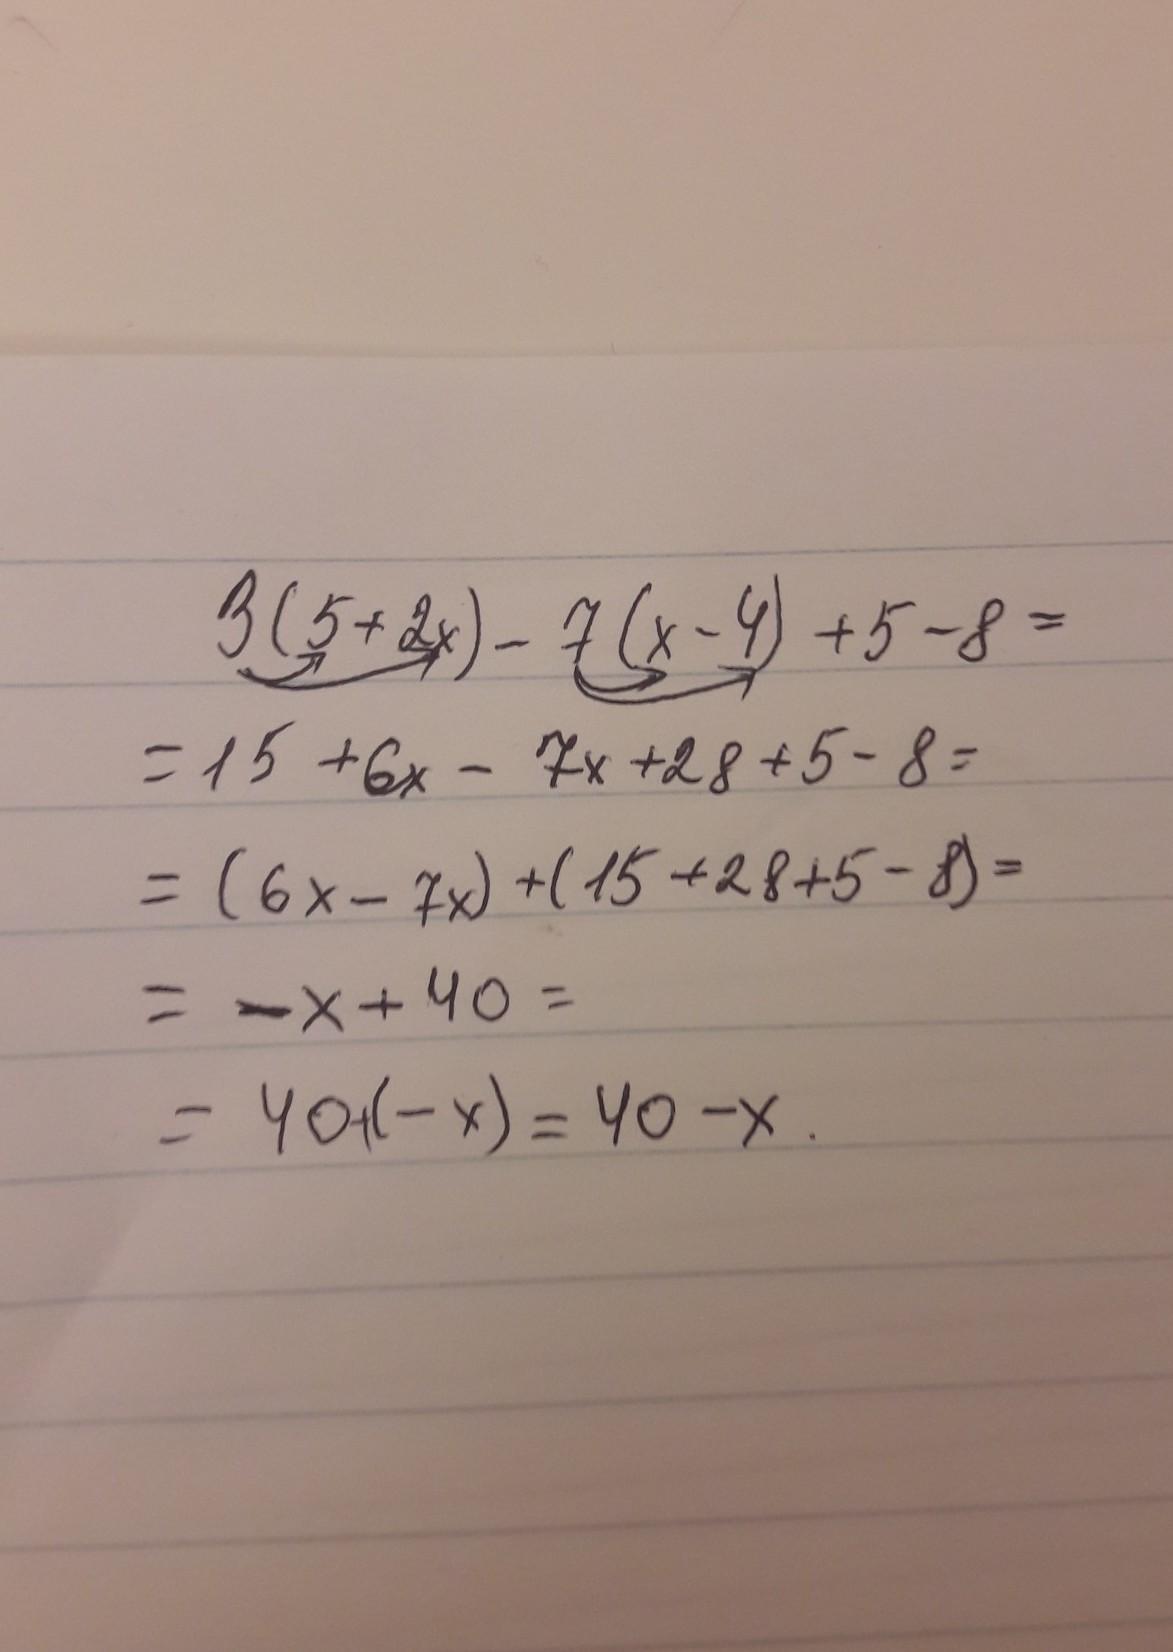 3(5+2x)-7(x-4)+5-8=
=15+6x-7x+28+5-8=
=(6x-7x)+(15+28+5-8)=
=-x+40=
=40+(-x)=40-x.